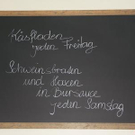 Käsfladen
jeden Freitag
Schweinsbraten
und Haxen
in Biersauce
jeden Samstag